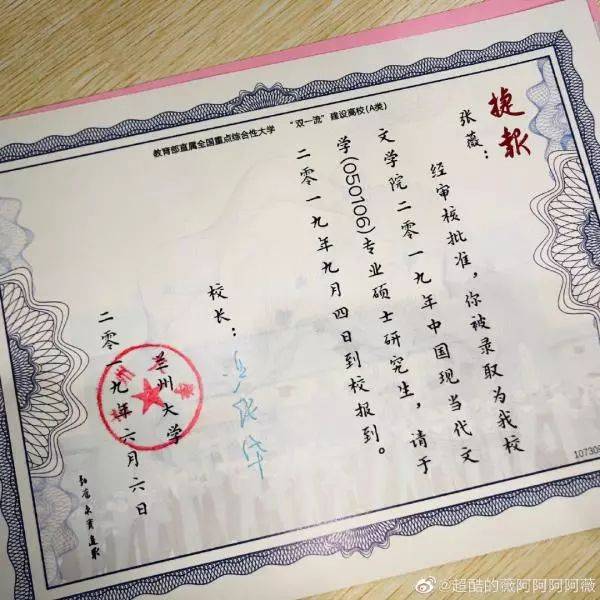 教育部直属全国重点综合性大学 “双一流”建设高校(A类)
捷报
张薇：
经审核批准，你被录取为我校
文学院二零一九年中国现当代文
学(050106)专业硕士研究生，请于
二零一九年九月四日到校报到。
校长：
兰州大学
二零一九年六月六日
10730
@超酷的薇阿阿阿阿薇